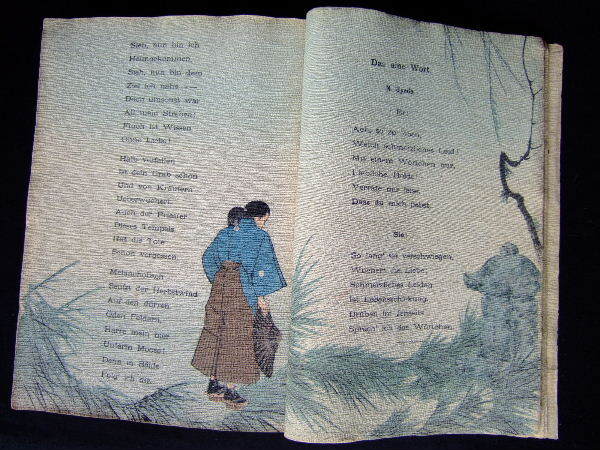 Sieh, nun bin ich
Heimgekommen,
Sieh, nun bin dem
Ziel ich nahe —
Doch umsonst war
All mein Streben!
Fluch ist Wissen
Ohne Liebe!
Halb verfallen
Ist dein Grab schon
Und von Kräutern
Ueberwuchert.
Auch der Priester
Dieses Tempels
Hat die Tote
Schon vergessen.
Melancholisch
Seufzt der Herbstwind
Auf den dürren,
Öden Feldern.
Harre mein nur
Unterm Moose!
Denn in Bälde
Folg' ich dir.
Das eine Wort.
Uyeda
Er:
Ach, so zu
Welch schmerzliches Leid!
Mit einem Wörtchen nur,
Liebliche, Holde,
Verrate mir leise,
Dass du mich liebst.
Sie:
So lang' es verschwiegen,
Wuchert die Liebe,
Schmerzliches Leiden
Ist
Drüben im Jenseits
ich das Wörtchen.